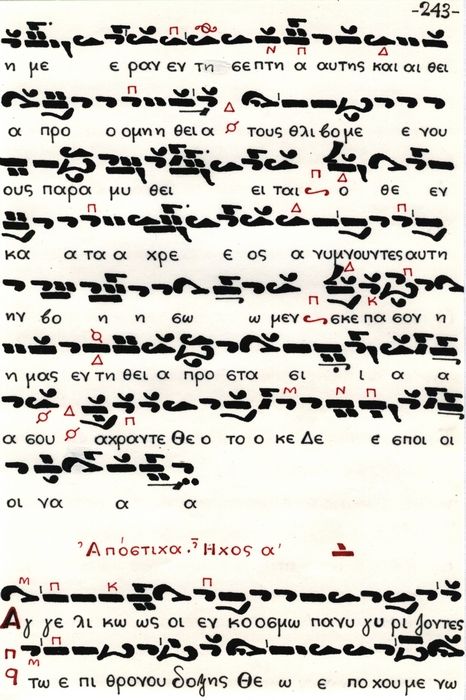 -243-
η με ε ραν εν τη σεπτη α αυτης και αι θει
α προ ο ομηη θει α τους θλι βο με ε νου
ους παρα μυ θει ει ται ο θε εν
κα α τα α χρε ε ος α νυμνουντες αυτη
ην βο η η σω ω μεν σκε πα σον η
η μας εν τη θει α προ στα σι ι α α
α σου αχραντε Θε ο το ο κε Δε ε σποι οι
οι να α α
Ἀπόστιχα. Ἦχος α'
Αγ γε λι κω ως οι εν κοσμω πανυ γυ ρι ζοντες
τω ε πι θρονου δοξης Θε ω ε πο χου με νω